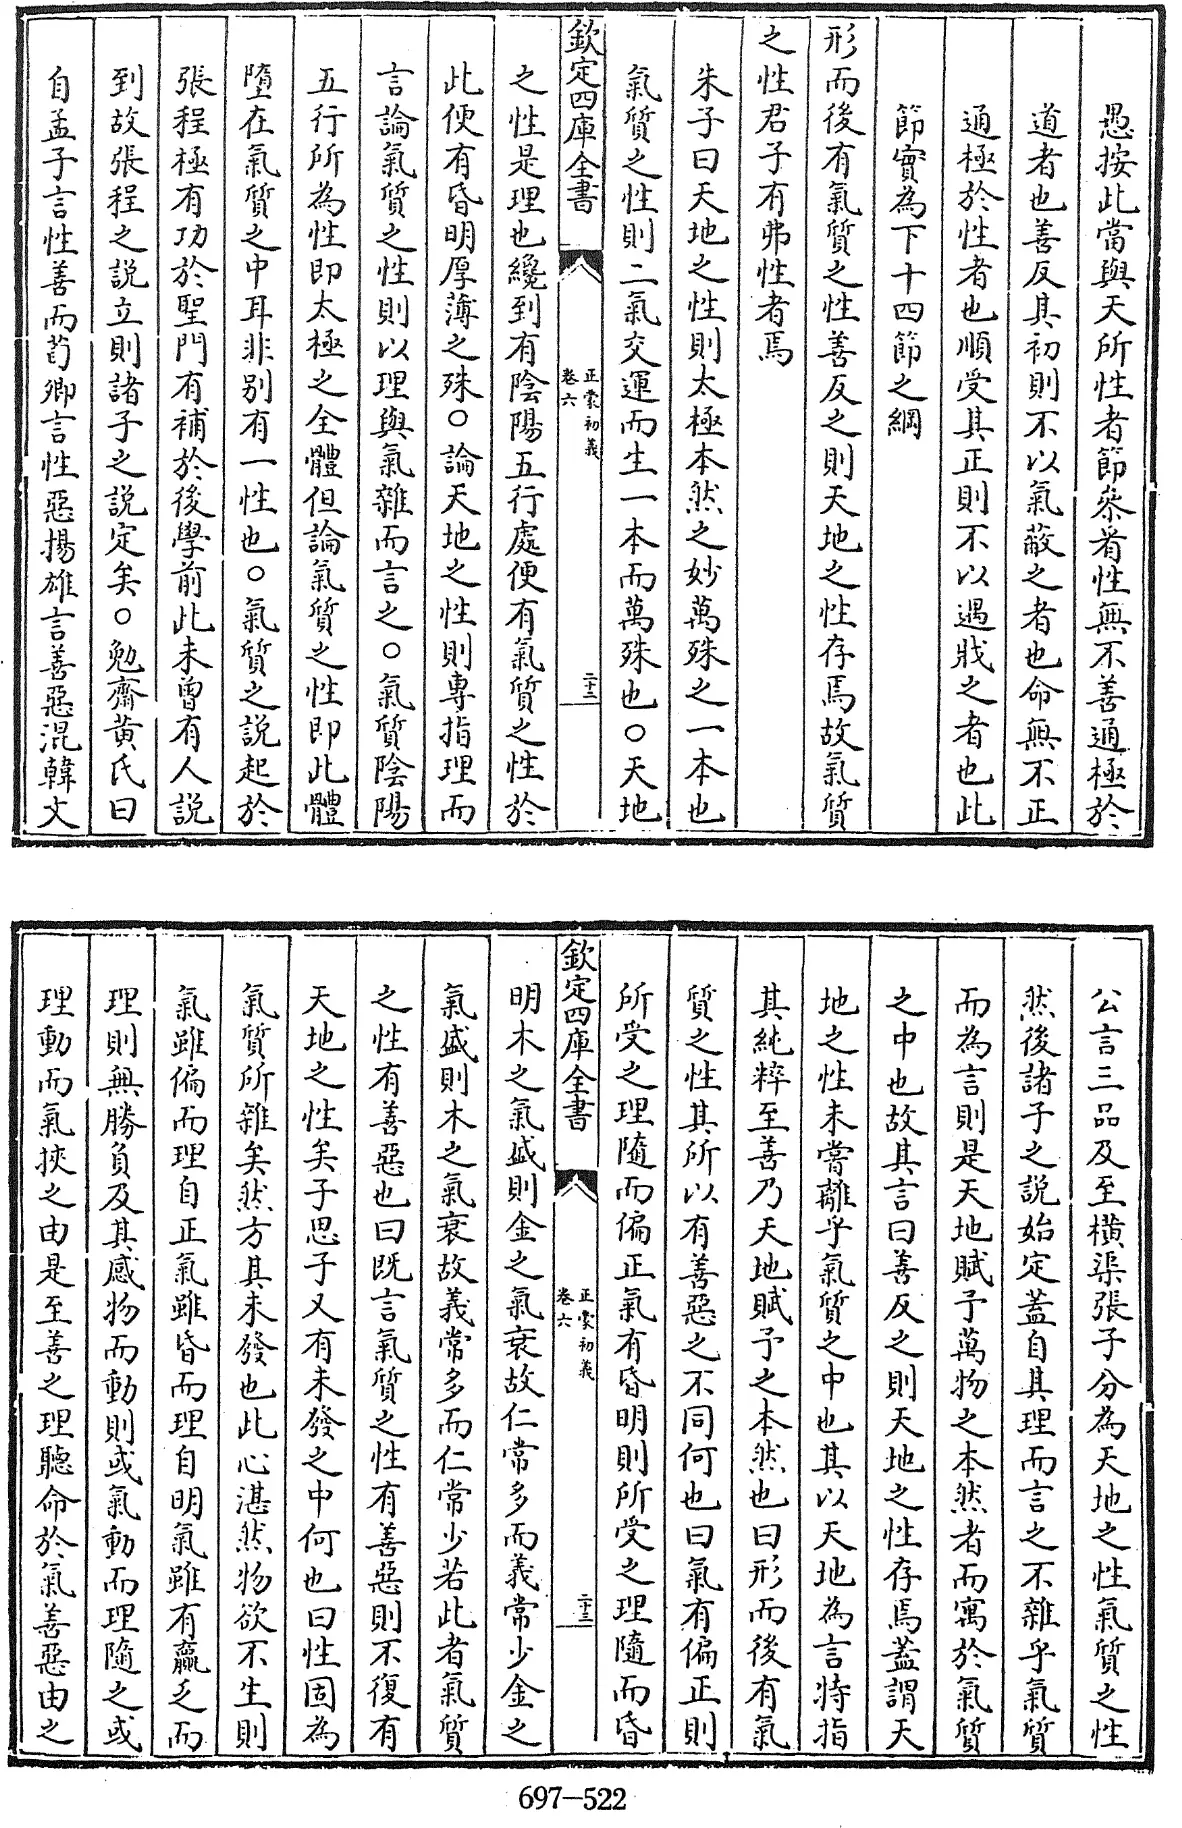 愚按此當與天所性者節叅㸔性無不善通極於
道者也善反其初則不以氣蔽之者也命無不正
通極於性者也順受其正則不以遇戕之者也此
節實為下十四節之綱
形而後有氣質之性善反之則天地之性存焉故氣質
之性君子有弗性者焉
朱子曰天地之性則太極本然之妙萬殊之一本也
氣質之性則二氣交運而生一本而萬殊也○天地
欽定四庫全書
正蒙初義
卷六
二十二
之性是理也纔到有陰陽五行處便有氣質之性於
此便有昏明厚薄之殊○論天地之性則專指理而
言論氣質之性則以理與氣雜而言之○氣質陰陽
五行所為性即太極之全體但論氣質之性即此體
墮在氣質之中耳非别有一性也○氣質之説起於
張程極有功於聖門有補於後學前此未曾有人説
到故張程之説立則諸子之説定矣○勉齋黄氏曰
自孟子言性善而荀卿言性惡揚雄言善惡混韓文
公言三品及至横渠張子分為天地之性氣質之性
然後諸子之説始定蓋自其理而言之不雜乎氣質
而為言則是天地賦予萬物之本然者而寓於氣質
之中也故其言曰善反之則天地之性存焉蓋謂天
地之性未嘗離乎氣質之中也其以天地為言特指
其純粹至善乃天地賦予之本然也曰形而後有氣
質之性其所以有善惡之不同何也曰氣有偏正則
所受之理隨而偏正氣有昏明則所受之理隨而昏
欽定四庫全書
正蒙初義
卷六
二十三
明木之氣盛則金之氣衰故仁常多而義常少金之
氣盛則木之氣衰故義常多而仁常少若此者氣質
之性有善惡也曰既言氣質之性有善惡則不復有
天地之性矣子思子又有未發之中何也曰性固為
氣質所雜矣然方其未發也此心湛然物欲不生則
氣雖偏而理自正氣雖昏而理自明氣雖有贏乏而
理則無勝負及其感物而動則或氣動而理隨之或
理動而氣挾之由是至善之理聽命於氣善惡由之
697—522